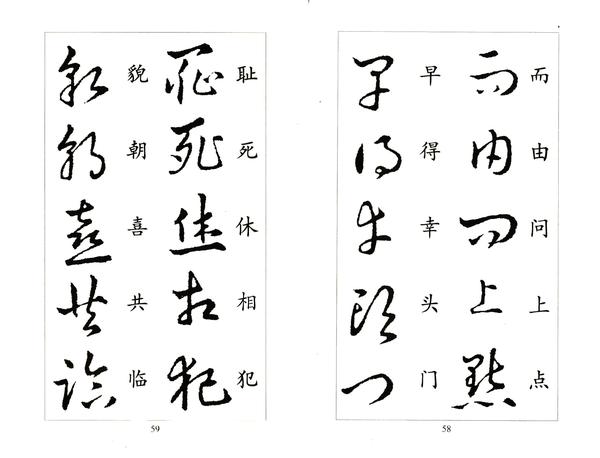 而由问上点
早得幸头门
58
耻死休相犯
貌朝喜共临
59